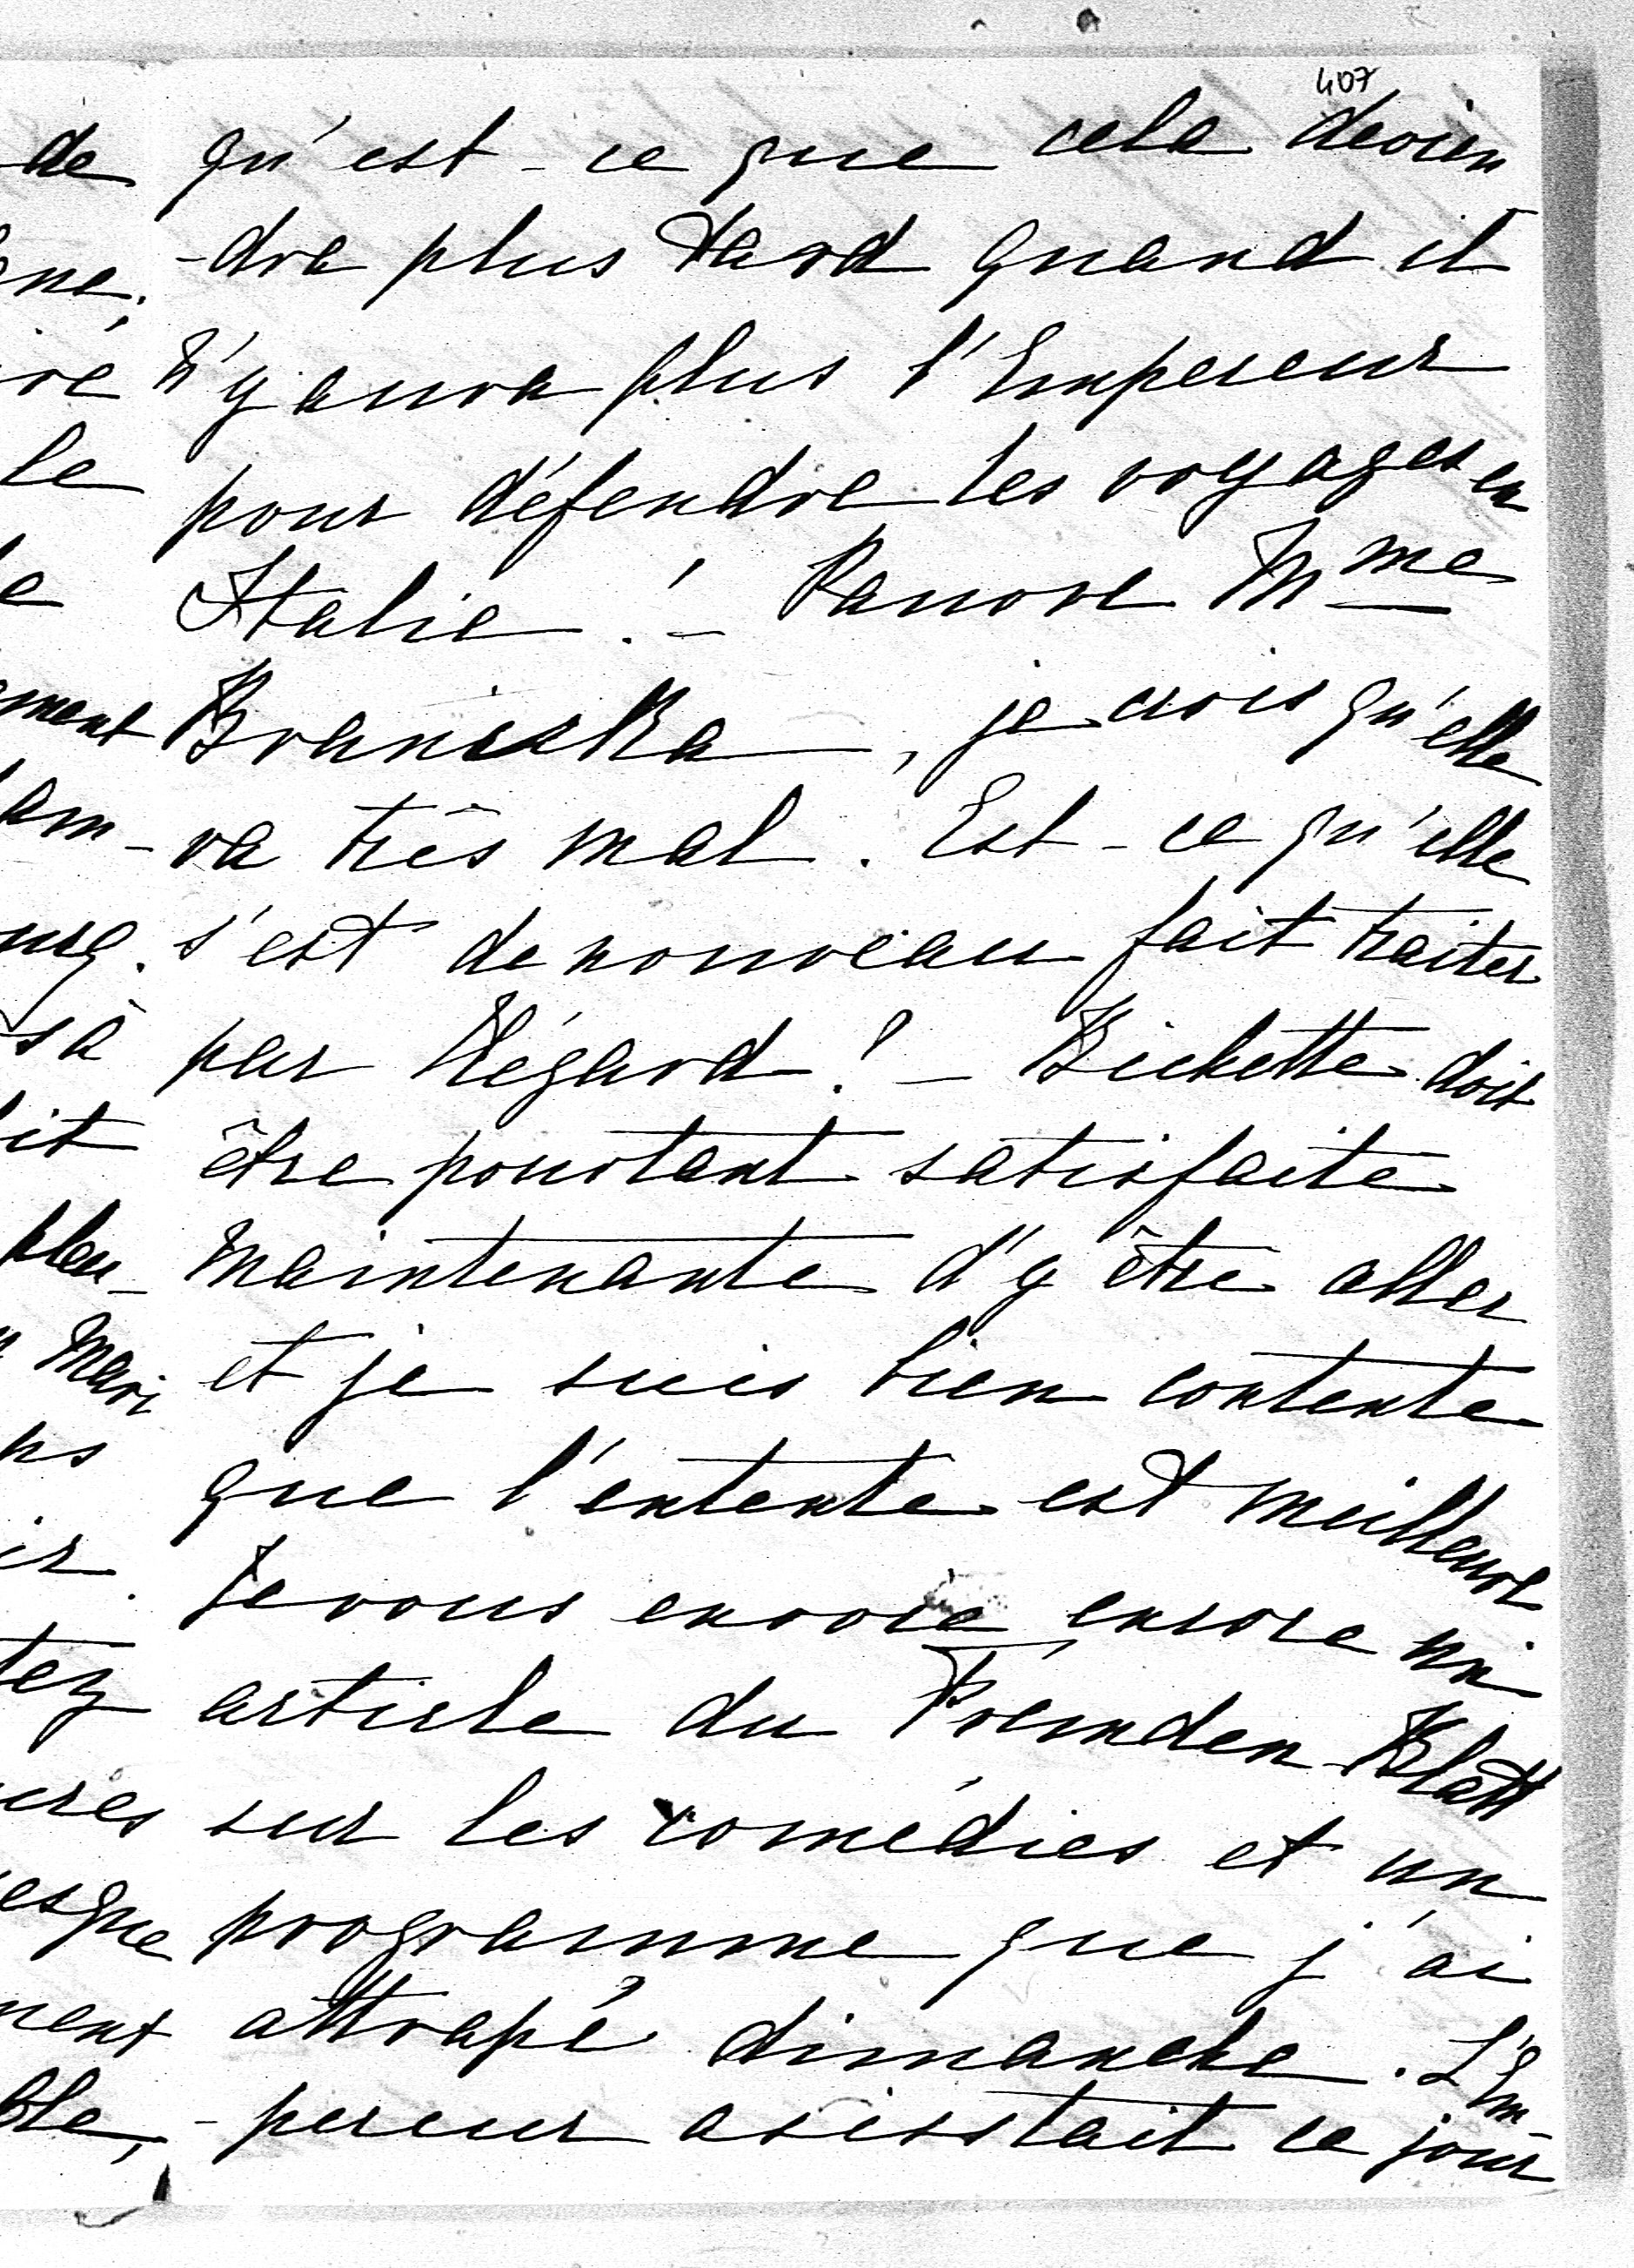 407
qu'est-ce que cela devien
-dra plus tard quand il
n'y aura plus l'Empereur
pour défendre les voyages en
Italie ! - Pauvre Mme
Braniska, je crois qu'elle
va très mal. Est-ce qu'elle
s'est de nouveau fait traiter
par Régard ? - Bichette doit
être pourtant satisfaite
maintenante d'y être aller
et je suis bien contente
que l'entente est meilleure
Je vous envoie encore un
article du Fremden-Blatt
sur les comédies et un
programme que j'ai
attrapé dimanche. L'Em
-pereur asisstait ce jour